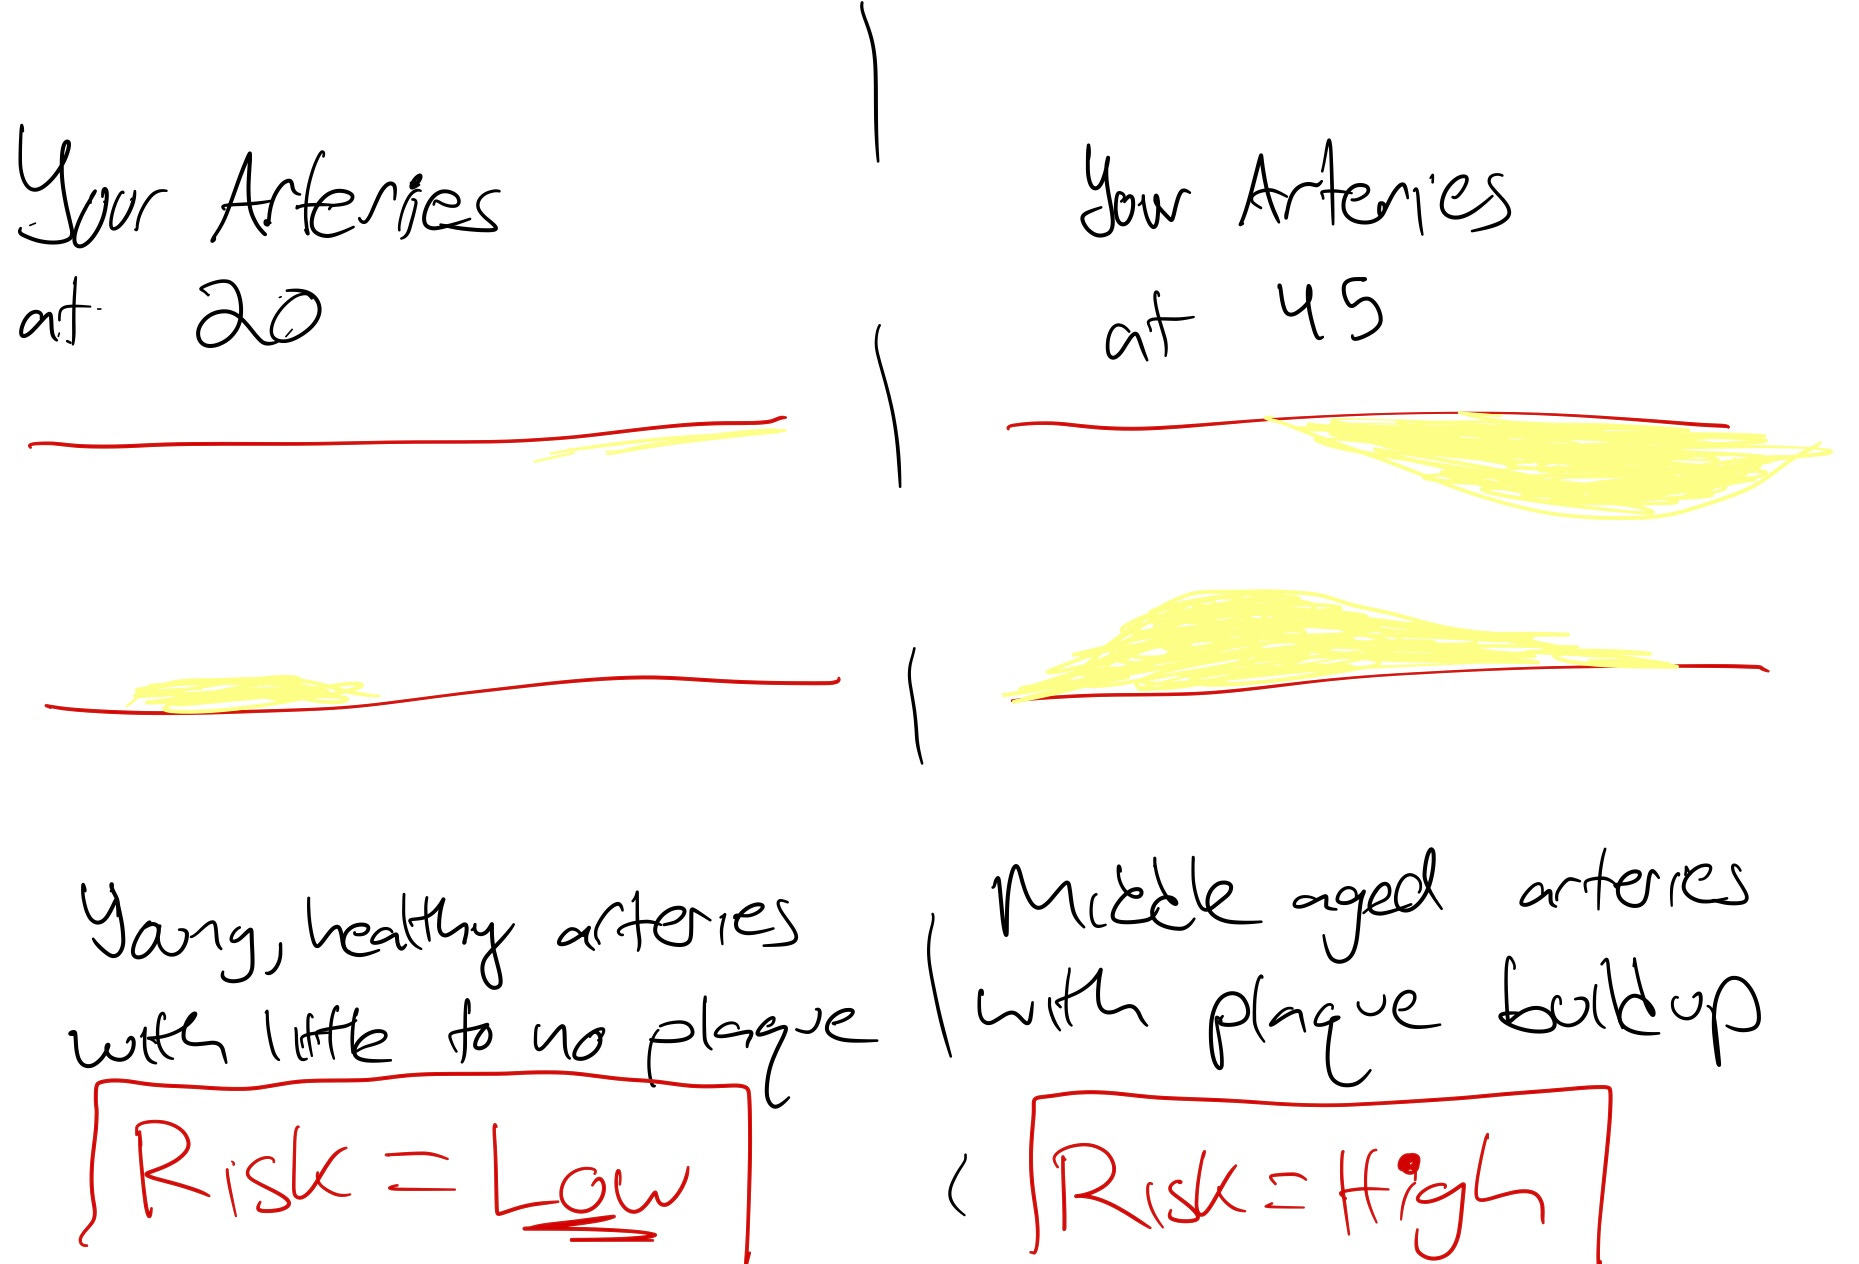 Your Arteries
at 20
Young, healthy arteries
with little to no plaque
Risk = Low
Your Arteries
at 45
Middle aged arteries
with plaque buildup
Risk = High